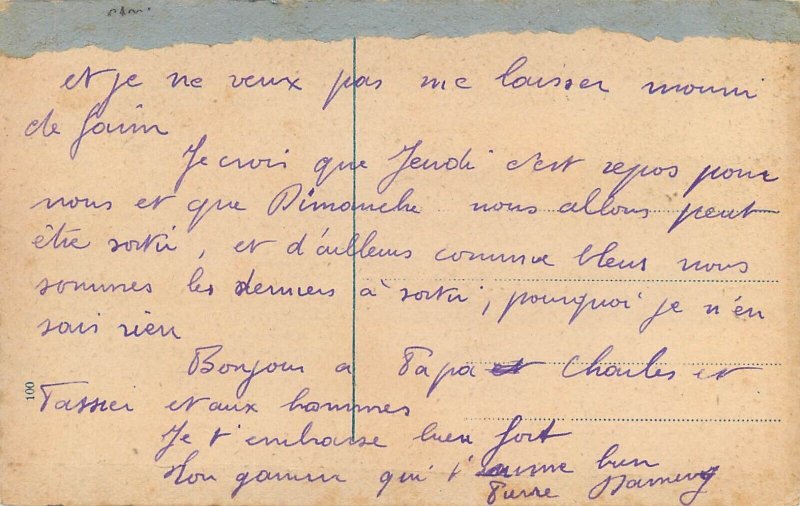 et je ne veux pas me laisser mourri
de faim
Je crois que Jeudi c'est repos pour
nous et que Dimanche nous allons peut
être sortir, et d'ailleurs comme bleus nous
sommes les derniers à sortir, pourquoi je n'en
sais rien
Bonjour a Papa et Charles et
Tassier et aux hommes
Je t'embrasse bien fort
Ton gamin qui t'aime bien
Pierre
100